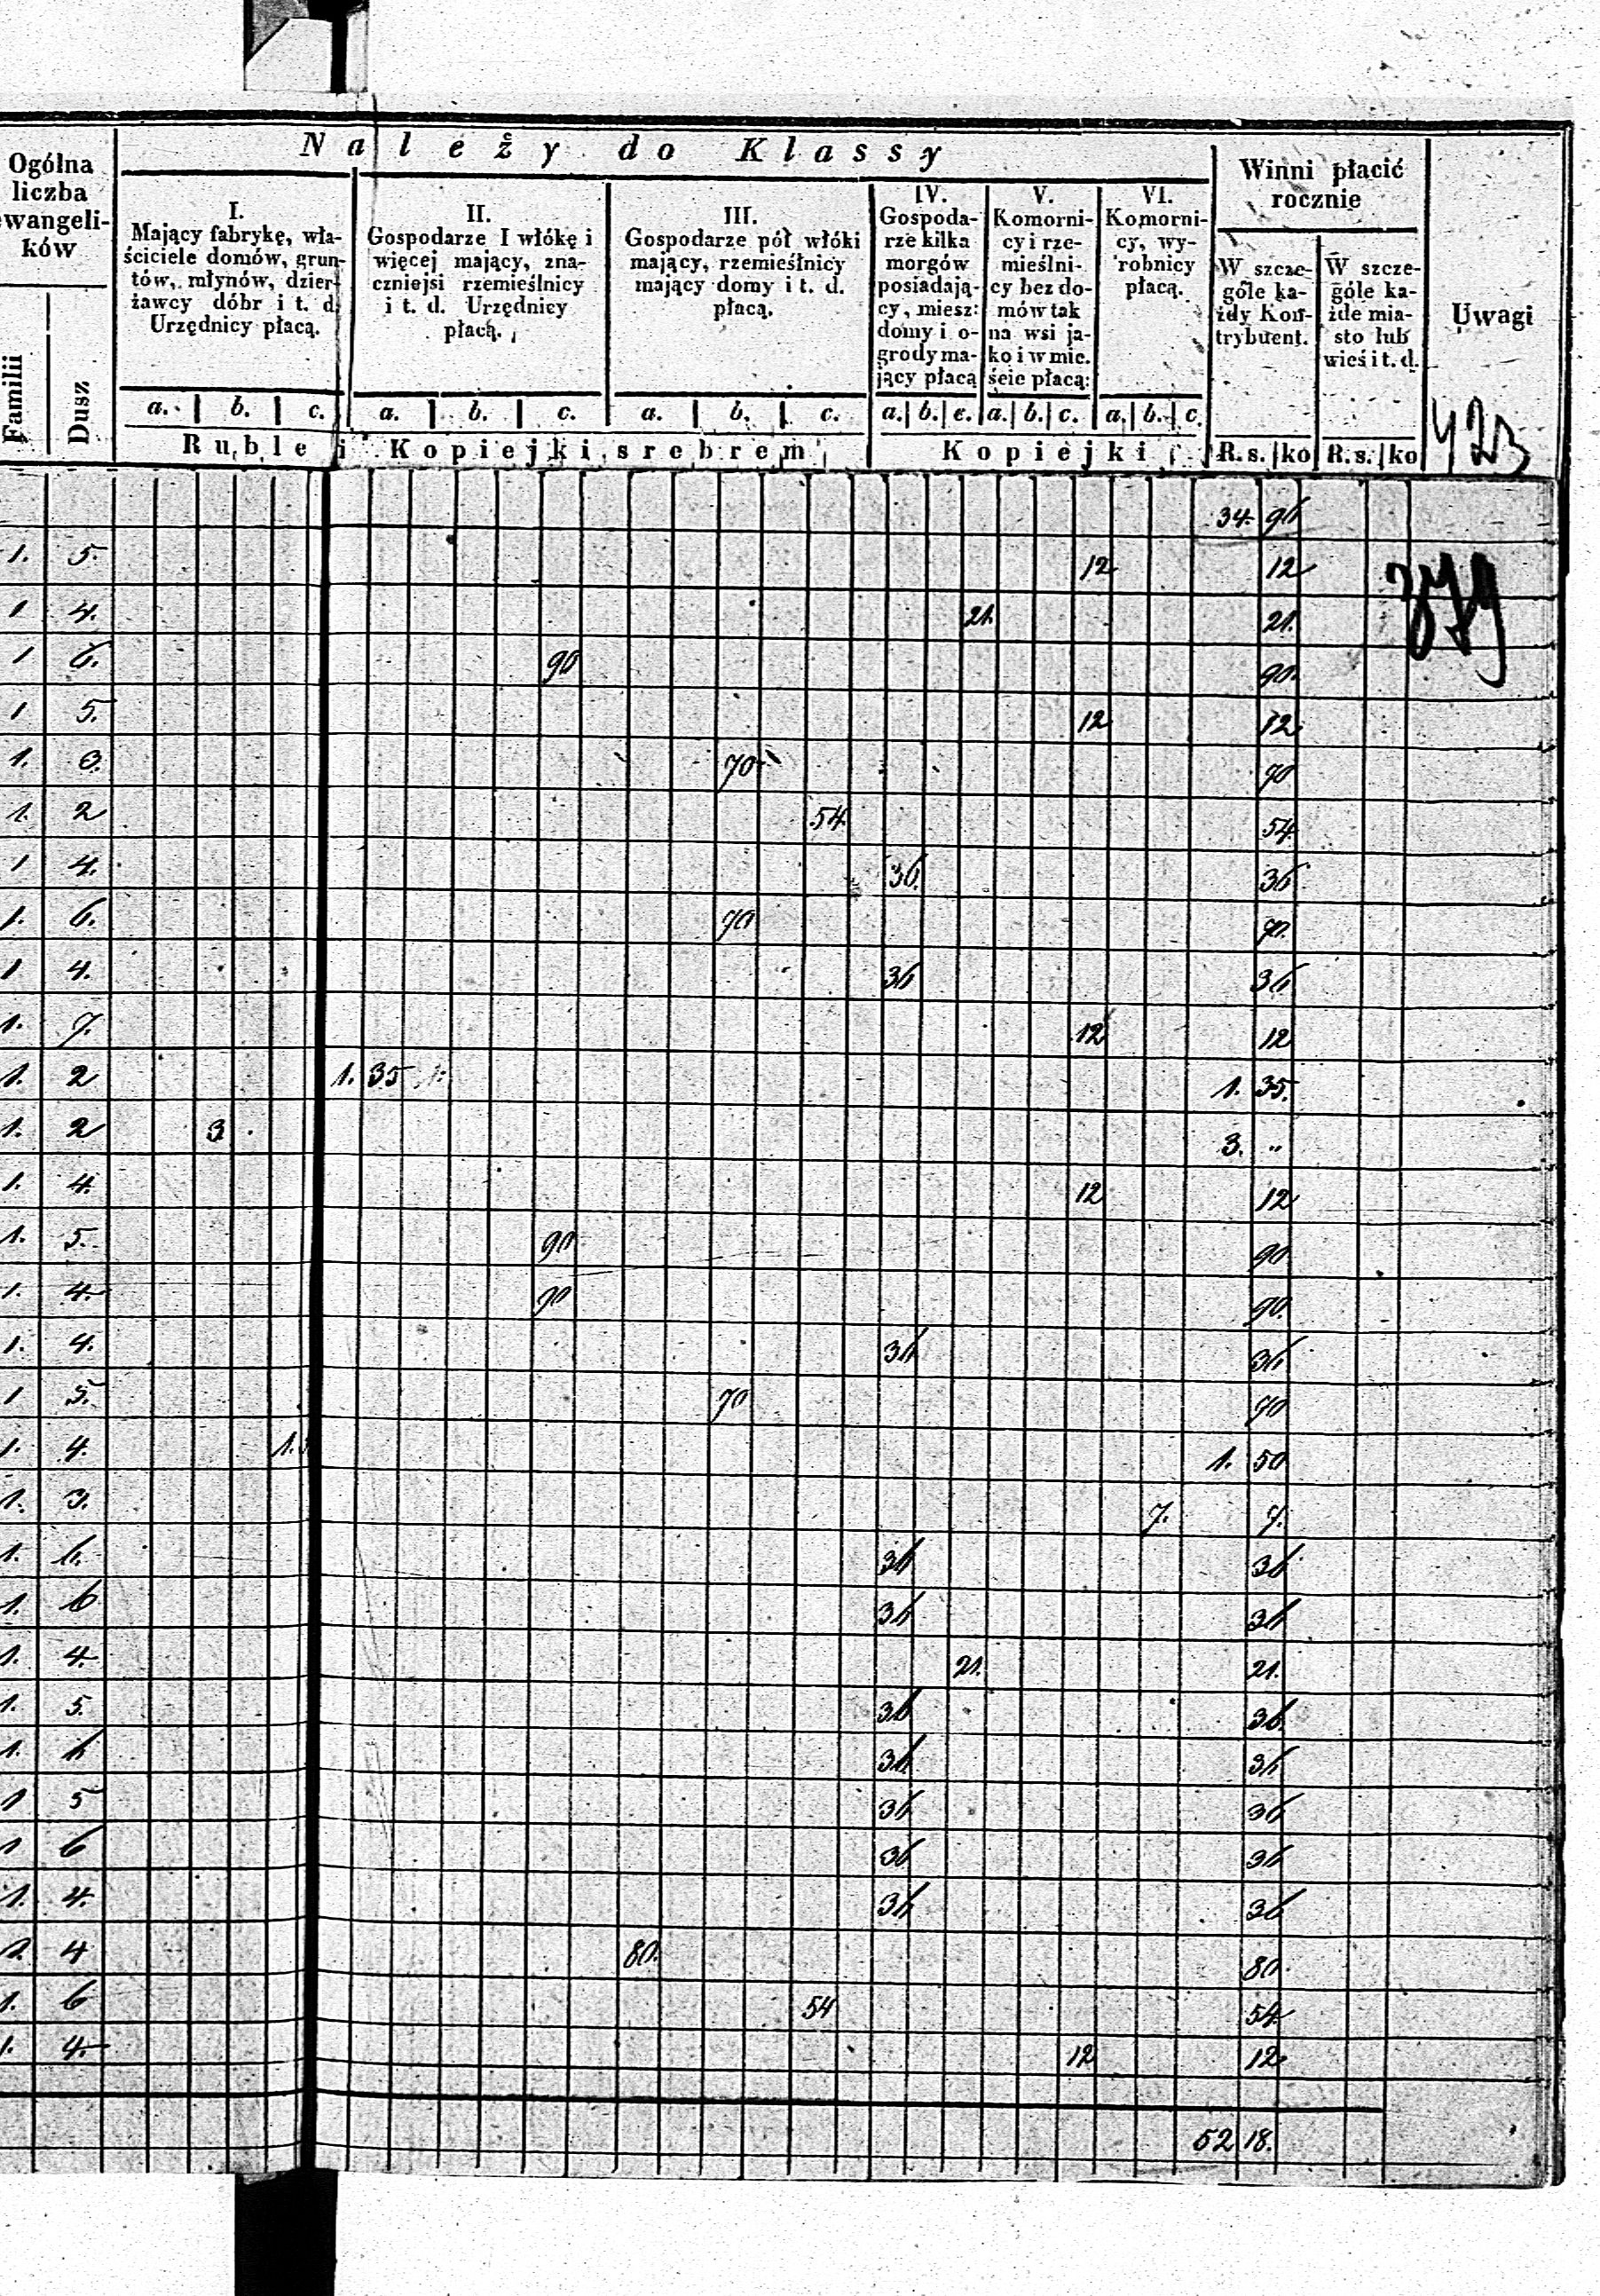 Należy do Klassy
Ogólna liczba ewangelików
Familii
Dusz
I. Mający fabrykę, właściciele domów, gruntów, młynów, dzierżawcy dóbr i t. d. Urzędnicy płacą.
II. Gospodarze I włókę i więcej mający, znaczniejsi rzemieślnicy i t. d. Urzędnicy płacą.
III. Gospodarze pół włóki mający, rzemieślnicy mający domy i t. d. płacą.
IV. Gospodarze kilka morgów posiadający, miesz: domy i ogrody mający płacą
V. Komornicy i rzemieślnicy bez domów tak na wsi jako i w mieście płacą:
VI. Komornicy, wyrobnicy płacą.
Winni płacić rocznie
W szczególe każdy Kontrybuent.
W szczególe każde miasto lub wieś i t. d.
Uwagi
a. b. c. a. b. c. a. b. c. a. b. c. a. b. c. a. b. c.
Ruble i Kopiejki srebrem
Kopiejki
R. s. ko R. s. ko
423
379
34. 96
1. 5. 12 12
1 4. 21. 21.
1 6. 90 90.
1 5. 12 12
1. 3. 70 70
1. 2 54. 54.
1 4. 36. 36
1. 6. 70 70.
1 4. 36 36
1. 7. 12 12
1. 2 1. 35 1. 35.
1. 2 3. 3. "
1. 4. 12 12
1. 5. 90 90
1. 4. 90 90.
1. 4. 36 36
1 5. 70 70
1. 4. 1. 1. 50
1. 3. 7. 7.
1. 6. 36 36
1. 6 36 36
1. 4. 21. 21.
1. 5. 36 36.
1. 6 36 36
1 5 36 36
1 6 36 36
1. 4. 36 36
4 80. 80.
1. 6 54 54
1. 4. 12 12
52 18.